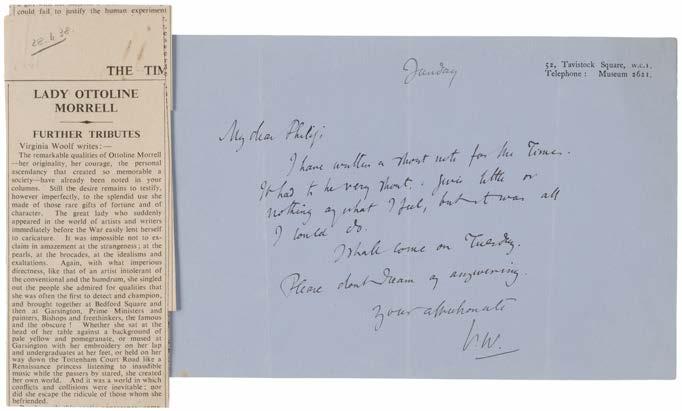 could fail to justify the human experiment
28.4.38
THE TIM
LADY OTTOLINE
MORRELL
FURTHER TRIBUTES
Virginia Woolf writes:—
The remarkable qualities of Ottoline Morrell
—her originality, her courage, the personal
ascendancy that created so memorable a
society—have already been noted in your
columns. Still the desire remains to testify,
however imperfectly, to the splendid use she
made of those rare gifts of fortune and of
character. The great lady who suddenly
appeared in the world of artists and writers
immediately before the War easily lent herself
to caricature. It was impossible not to ex-
claim in amazement at the strangeness; at the
pearls, at the brocades, at the idealisms and
exaltations. Again, with what imperious
directness, like that of an artist intolerant of
the conventional and the humdrum, she singled
out the people she admired for qualities that
she was often the first to detect and champion,
and brought together at Bedford Square and
then at Garsington, Prime Ministers and
painters, Bishops and freethinkers, the famous
and the obscure! Whether she sat at the
head of her table against a background of
pale yellow and pomegranate, or mused at
Garsington with her embroidery on her lap
and undergraduates at her feet, or held on her
way down the Tottenham Court Road like a
Renaissance princess listening to inaudible
music while the passers by stared, she created
her own world. And it was a world in which
conflicts and collisions were inevitable; nor
did she escape the ridicule of those whom she
befriended.
Sunday
52, Tavistock Square, W.C.1.
Telephone: Museum 2621.
My dear Philip,
I have written a short note for the Times.
It had to be very short. gives little or
nothing of what I feel, but it was all
I could do.
I shall come on Tuesday.
Please dont dream of answering.
your affectionate
VW.